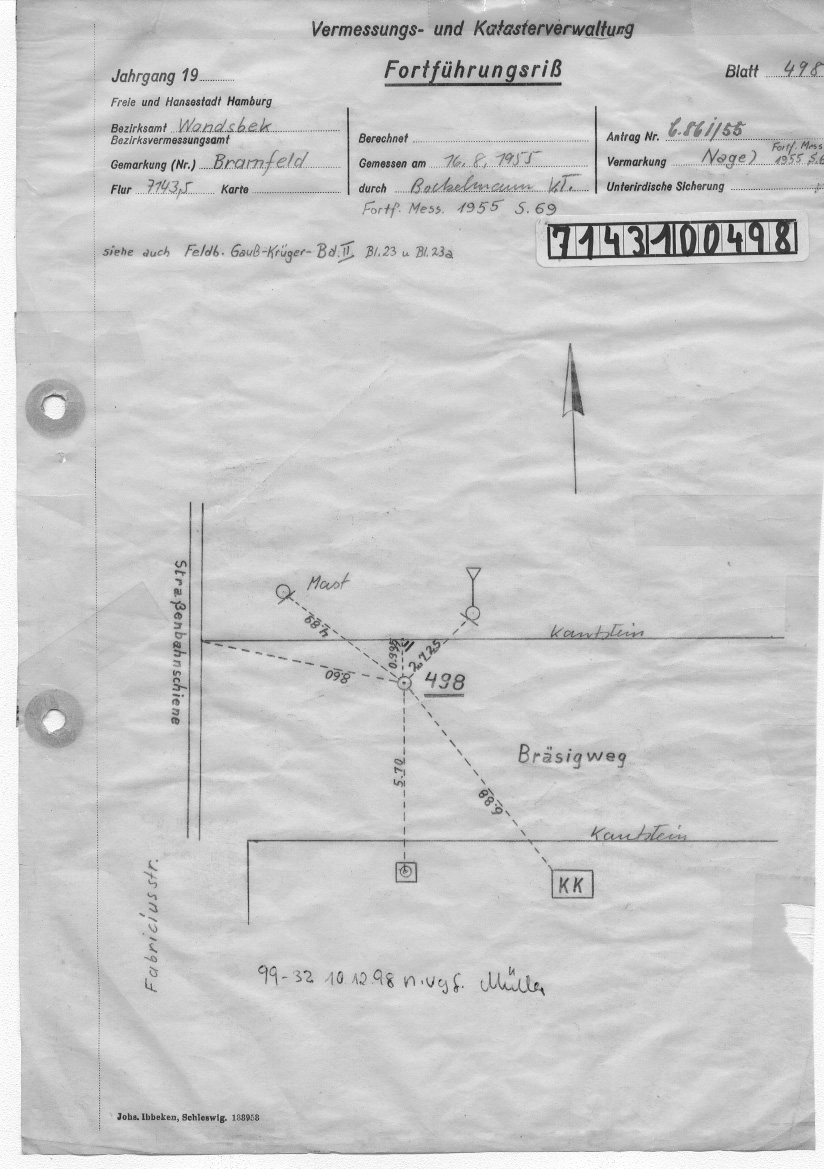 Vermessungs- und Katasterverwaltung
Jahrgang 19
Fortführungsriß
Blatt 498
Freie und Hansestadt Hamburg
Bezirksamt Wandsbek
Bezirksvermessungsamt
Gemarkung (Nr.) Bramfeld
Flur 7143,5 Karte
Berechnet
Gemessen am 16.8.1955
durch Bockelmann VT.
Fortf. Mess. 1955 S.69
Antrag Nr. 61/55
Vermarkung Nagel
Fortf. Mess
1955 S.6
Unterirdische Sicherung
7143100498
siehe auch Feldb. Gauß-Krüger-Bd.II Bl.23 u Bl.23a
Straßenbahnschiene
Mast
4.89
Kantstein
0.995
8.60
498
5.70
Bräsigweg
6.88
Kantstein
KK
Fabriciusstr.
99-32 10.12.98 n.vgf. Müller
Johs. Ibbeken, Schleswig. 138958